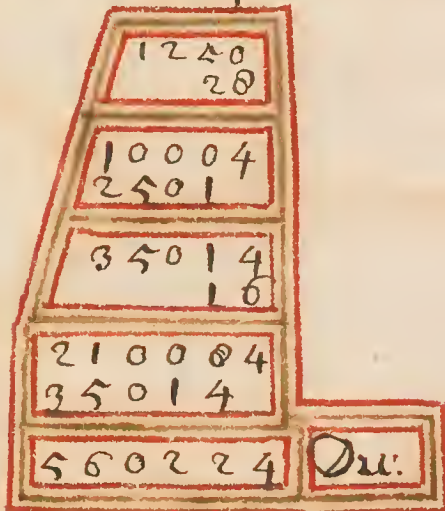 1 2 5 0
2 8
1 0 0 0 4
2 5 0 1
3 5 0 1 4
1 6
2 1 0 0 8 4
3 5 0 1 4
5 6 0 2 2 4